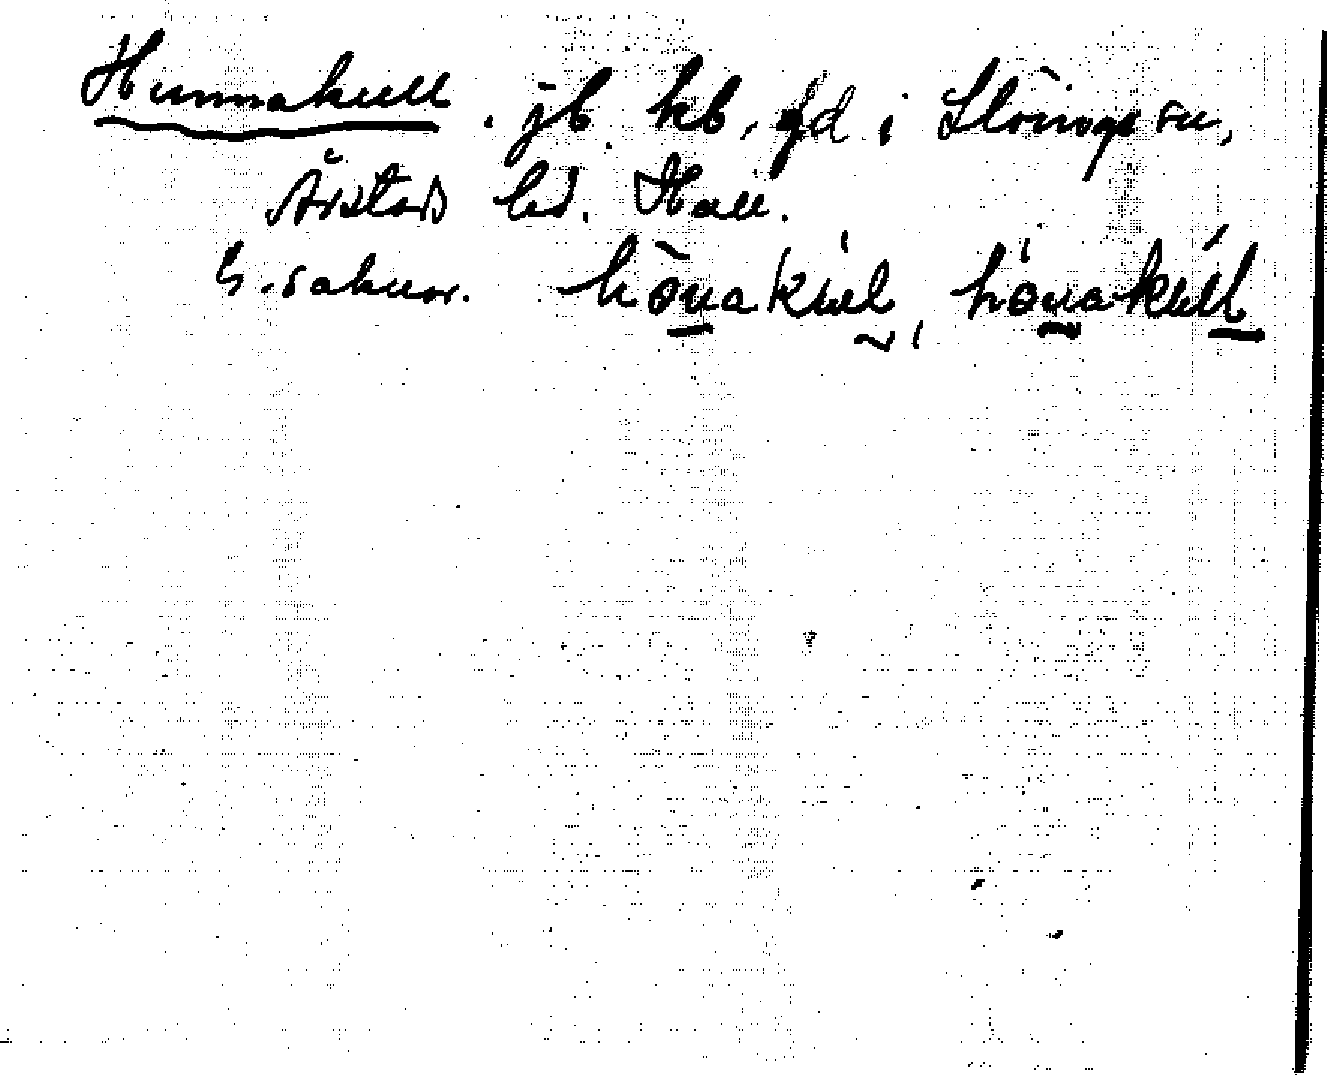 Hunnakull. jb. kb, gd i Slöinge sn,
Årstads hd. Hall.
G. saknar. hònakùl, hònakúll